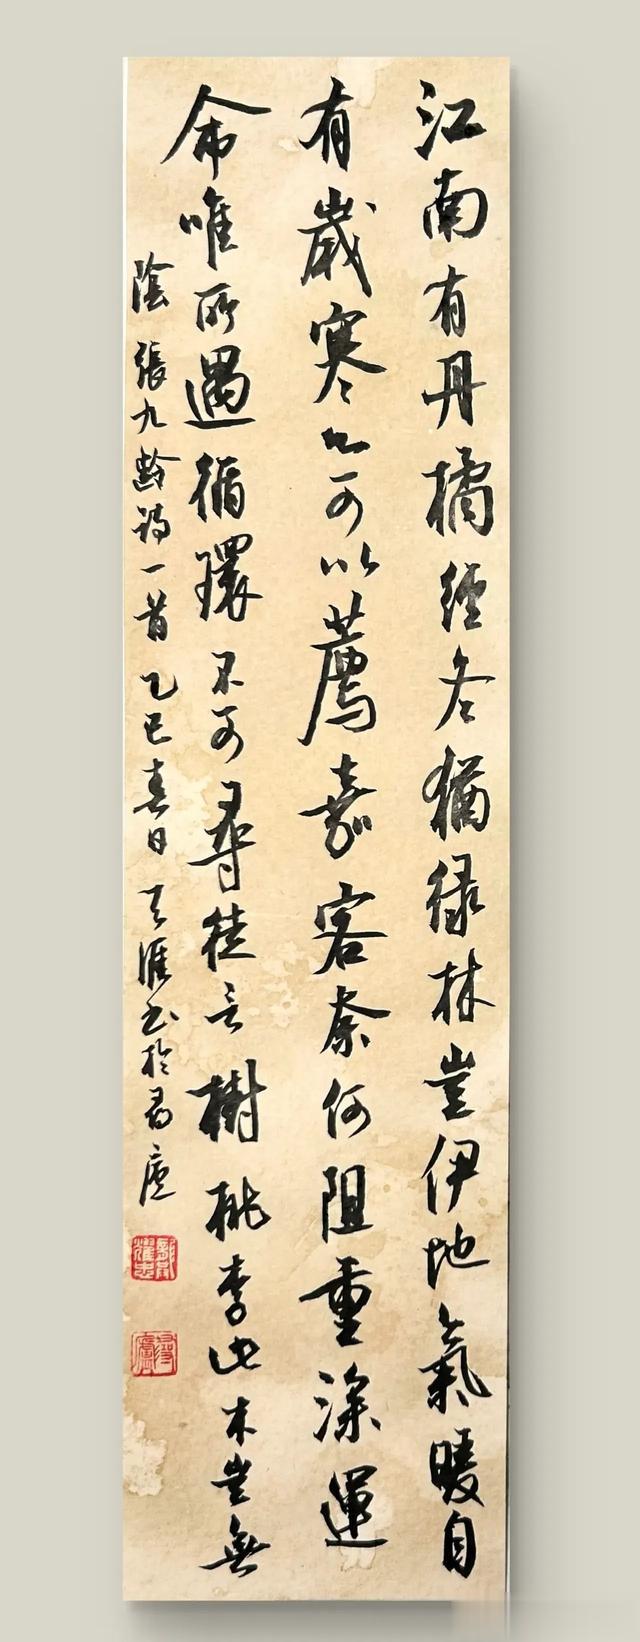 江南有丹橘經冬猶緑林豈伊地氣暖自
有歲寒心可以薦嘉客奈何阻重深運
命唯所遇循環不可尋徒言樹桃李此木豈無
陰張九齡詩一首乙巳春日天涯书於廬